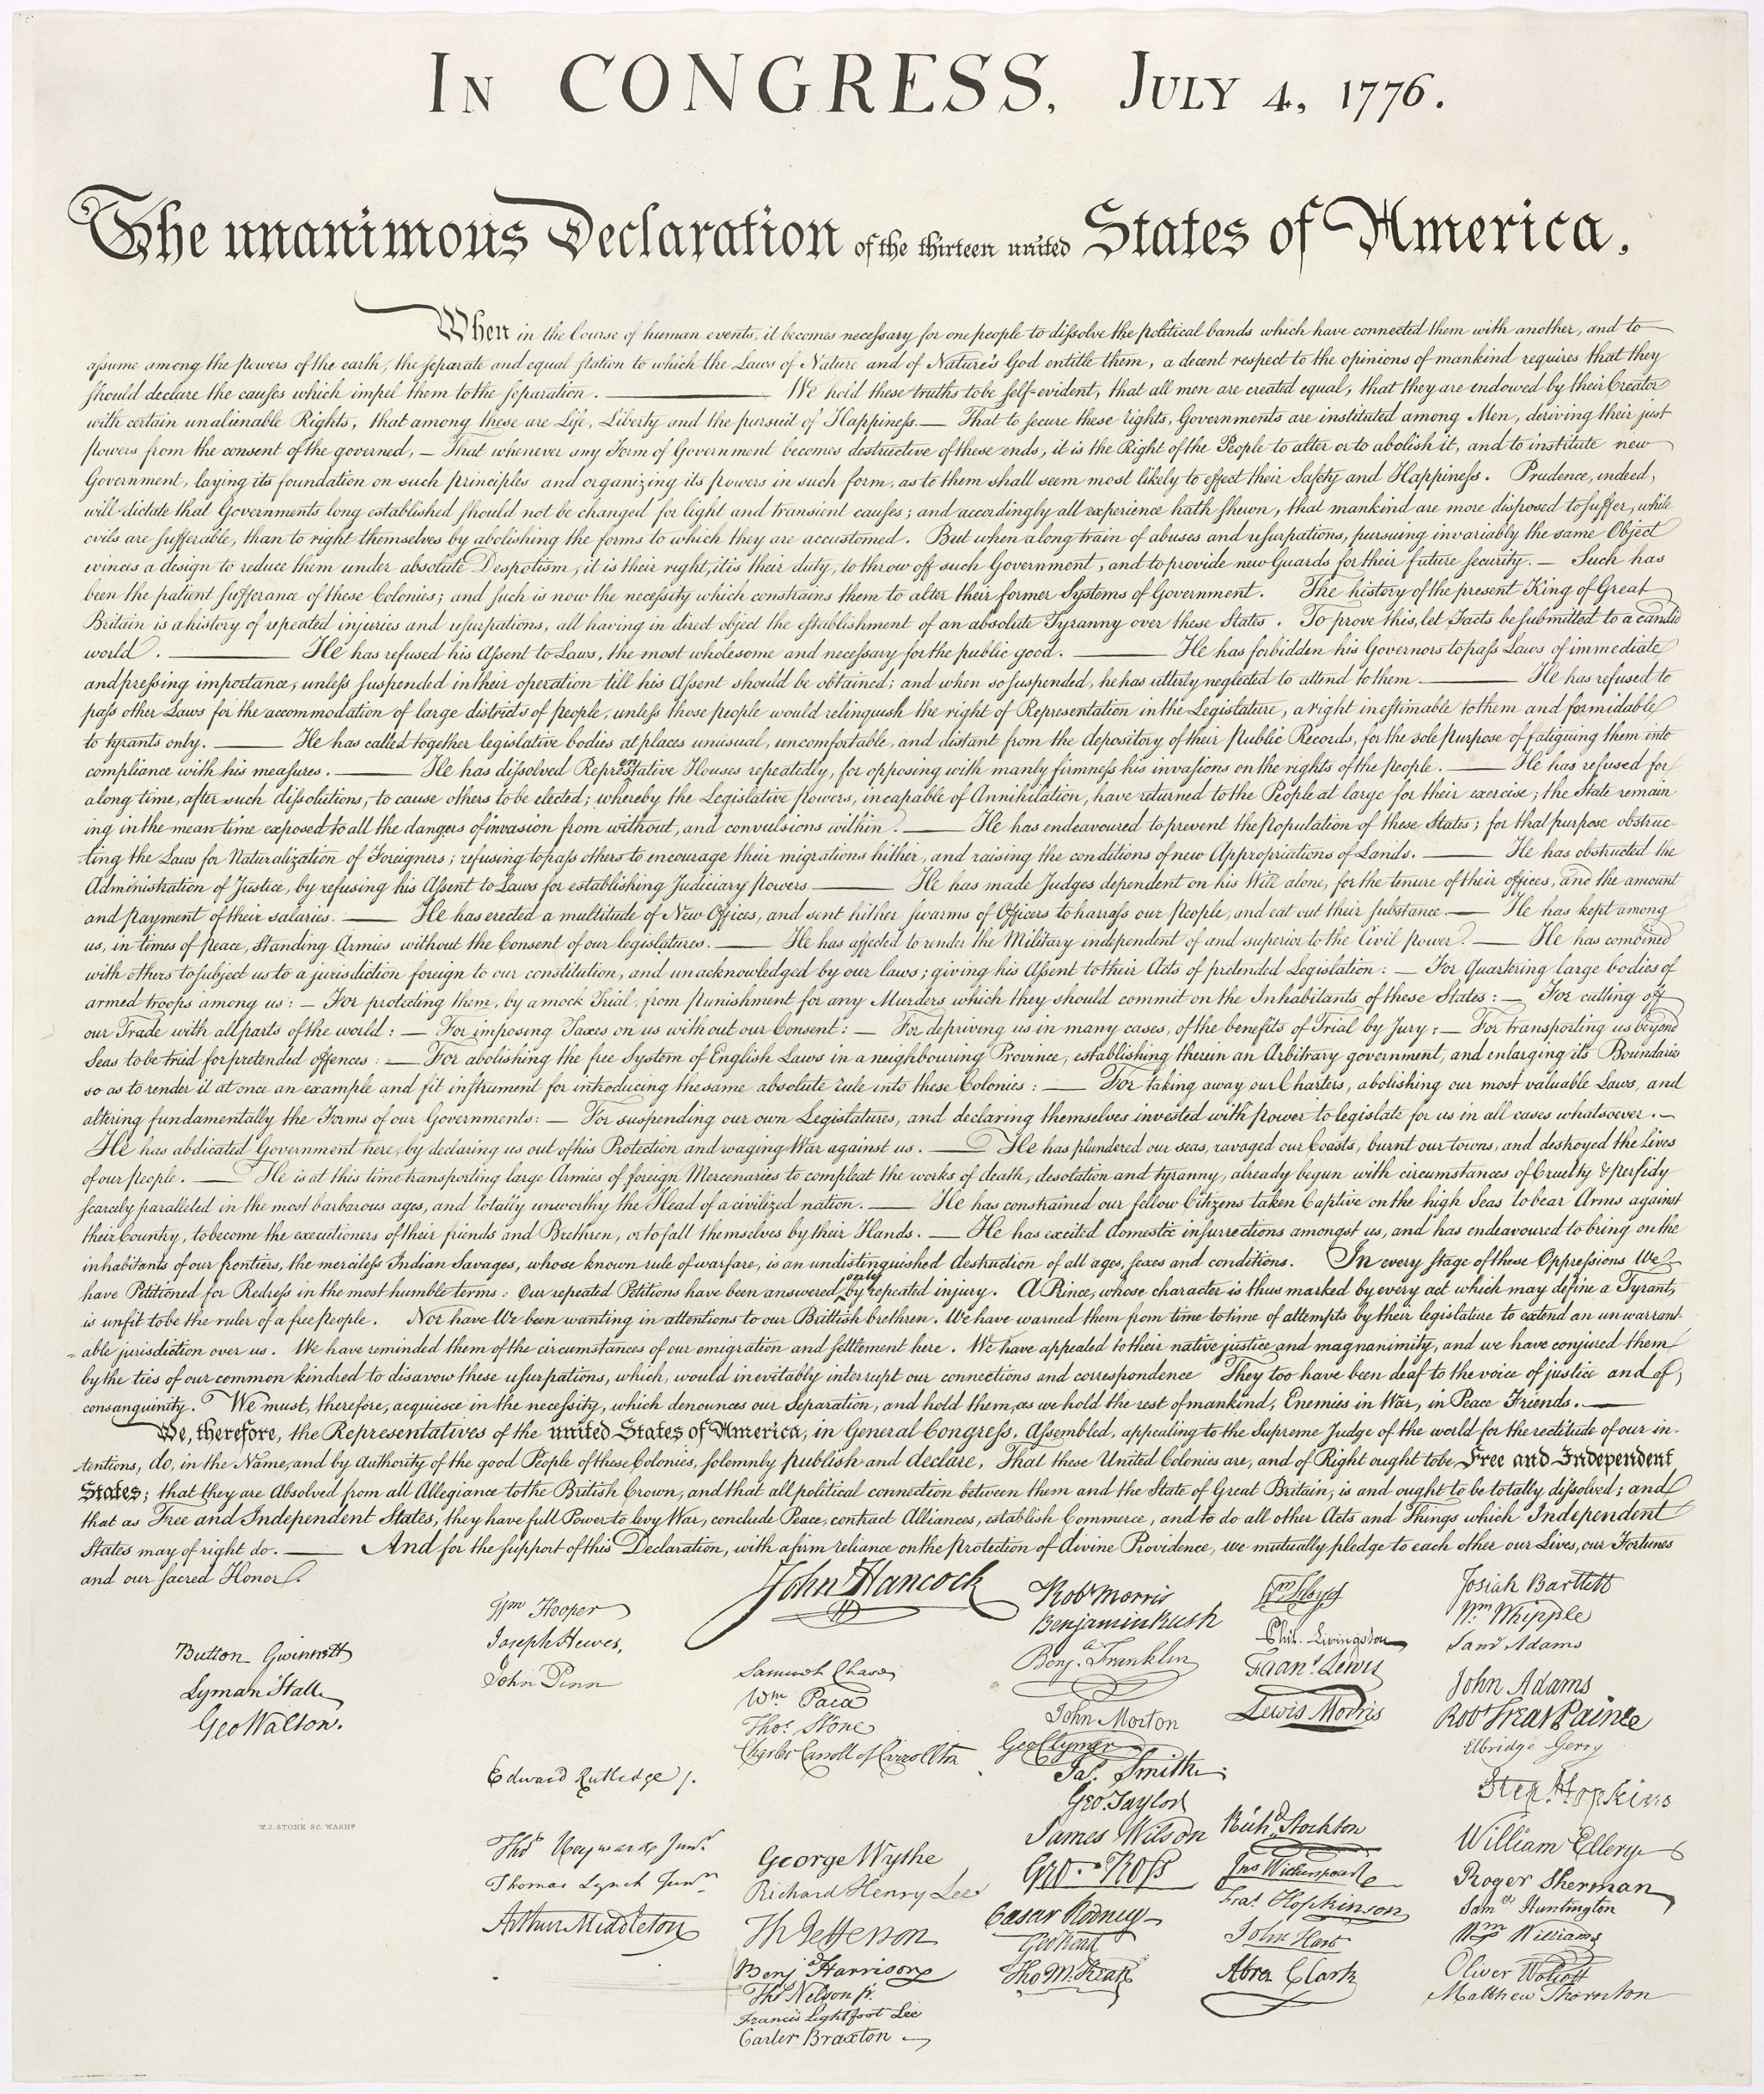 IN CONGRESS, JULY 4, 1776.
The unanimous Declaration of the thirteen united States of America,
When in the Course of human events, it becomes necessary for one people to dissolve the political bands which have connected them with another, and to
assume among the powers of the earth, the separate and equal station to which the Laws of Nature and of Nature's God entitle them, a decent respect to the opinions of mankind requires that they
should declare the causes which impel them to the separation. ——— We hold these truths to be self-evident, that all men are created equal, that they are endowed by their Creator
with certain unalienable Rights, that among these are Life, Liberty and the pursuit of Happiness.— That to secure these rights, Governments are instituted among Men, deriving their just
powers from the consent of the governed, — That whenever any Form of Government becomes destructive of these ends, it is the Right of the People to alter or to abolish it, and to institute new
Government, laying its foundation on such principles and organizing its powers in such form, as to them shall seem most likely to effect their Safety and Happiness. Prudence, indeed,
will dictate that Governments long established should not be changed for light and transient causes; and accordingly all experience hath shewn, that mankind are more disposed to suffer, while
evils are sufferable, than to right themselves by abolishing the forms to which they are accustomed. But when a long train of abuses and usurpations, pursuing invariably the same Object
evinces a design to reduce them under absolute Despotism, it is their right, it is their duty, to throw off such Government, and to provide new Guards for their future security. — Such has
been the patient sufferance of these Colonies; and such is now the necessity which constrains them to alter their former Systems of Government. The history of the present King of Great
Britain is a history of repeated injuries and usurpations, all having in direct object the establishment of an absolute Tyranny over these States. To prove this, let Facts be submitted to a candid
world. ——— He has refused his Assent to Laws, the most wholesome and necessary for the public good. ——— He has forbidden his Governors to pass Laws of immediate
and pressing importance, unless suspended in their operation till his Assent should be obtained; and when so suspended, he has utterly neglected to attend to them. ——— He has refused to
pass other Laws for the accommodation of large districts of people, unless those people would relinquish the right of Representation in the Legislature, a right inestimable to them and formidable
to tyrants only. ——— He has called together legislative bodies at places unusual, uncomfortable, and distant from the depository of their Public Records, for the sole purpose of fatiguing them into
compliance with his measures. ——— He has dissolved Representative Houses repeatedly, for opposing with manly firmness his invasions on the rights of the people. ——— He has refused for
a long time, after such dissolutions, to cause others to be elected; whereby the Legislative powers, incapable of Annihilation, have returned to the People at large for their exercise; the State remain
ing in the mean time exposed to all the dangers of invasion from without, and convulsions within. ——— He has endeavoured to prevent the population of these States; for that purpose obstruc-
ting the Laws for Naturalization of Foreigners; refusing to pass others to encourage their migrations hither, and raising the conditions of new Appropriations of Lands. ——— He has obstructed the
Administration of Justice, by refusing his Assent to Laws for establishing Judiciary powers. ——— He has made Judges dependent on his Will alone, for the tenure of their offices, and the amount
and payment of their salaries. ——— He has erected a multitude of New Offices, and sent hither swarms of Officers to harrass our people, and eat out their substance. — He has kept among
us, in times of peace, Standing Armies without the Consent of our legislatures. ——— He has affected to render the Military independent of and superior to the Civil power. — He has combined
with others to subject us to a jurisdiction foreign to our constitution, and unacknowledged by our laws; giving his Assent to their Acts of pretended Legislation: — For Quartering large bodies of
armed troops among us: — For protecting them, by a mock Trial, from punishment for any Murders which they should commit on the Inhabitants of these States: — For cutting off
our Trade with all parts of the world: — For imposing Taxes on us without our Consent: — For depriving us in many cases, of the benefits of Trial by Jury: — For transporting us beyond
Seas to be tried for pretended offences: — For abolishing the free System of English Laws in a neighbouring Province, establishing therein an Arbitrary government, and enlarging its Boundaries
so as to render it at once an example and fit instrument for introducing the same absolute rule into these Colonies: — For taking away our Charters, abolishing our most valuable Laws, and
altering fundamentally the Forms of our Governments: — For suspending our own Legislatures, and declaring themselves invested with power to legislate for us in all cases whatsoever. —
He has abdicated Government here, by declaring us out of his Protection and waging War against us. ——— He has plundered our seas, ravaged our Coasts, burnt our towns, and destroyed the lives
of our people. ——— He is at this time transporting large Armies of foreign Mercenaries to compleat the works of death, desolation and tyranny, already begun with circumstances of Cruelty & perfidy
scarcely paralleled in the most barbarous ages, and totally unworthy the Head of a civilized nation. ——— He has constrained our fellow Citizens taken Captive on the high Seas to bear Arms against
their Country, to become the executioners of their friends and Brethren, or to fall themselves by their Hands. — He has excited domestic insurrections amongst us, and has endeavoured to bring on the
inhabitants of our frontiers, the merciless Indian Savages, whose known rule of warfare, is an undistinguished destruction of all ages, sexes and conditions. In every stage of these Oppressions We
have Petitioned for Redress in the most humble terms: Our repeated Petitions have been answered only by repeated injury. A Prince, whose character is thus marked by every act which may define a Tyrant,
is unfit to be the ruler of a free people. Nor have We been wanting in attentions to our Brittish brethren. We have warned them from time to time of attempts by their legislature to extend an unwarrant-
able jurisdiction over us. We have reminded them of the circumstances of our emigration and settlement here. We have appealed to their native justice and magnanimity, and we have conjured them
by the ties of our common kindred to disavow these usurpations, which, would inevitably interrupt our connections and correspondence They too have been deaf to the voice of justice and of
consanguinity. We must, therefore, acquiesce in the necessity, which denounces our Separation, and hold them, as we hold the rest of mankind, Enemies in War, in Peace Friends. ———
We, therefore, the Representatives of the united States of America, in General Congress, Assembled, appealing to the Supreme Judge of the world for the rectitude of our in-
tentions, do, in the Name, and by Authority of the good People of these Colonies, solemnly publish and declare, That these United Colonies are, and of Right ought to be Free and Independent
States; that they are Absolved from all Allegiance to the British Crown, and that all political connection between them and the State of Great Britain, is and ought to be totally dissolved; and
that as Free and Independent States, they have full Power to levy War, conclude Peace, contract Alliances, establish Commerce, and to do all other Acts and Things which Independent
States may of right do. ——— And for the support of this Declaration, with a firm reliance on the protection of divine Providence, we mutually pledge to each other our Lives, our Fortunes
and our sacred Honor.
Button Gwinnett
Lyman Hall
Geo Walton.
Wm Hooper
Joseph Hewes,
John Penn
Edward Rutledge /.
Thos Heyward Junr.
Thomas Lynch Junr.
Arthur Middleton
John Hancock
Samuel Chase
Wm. Paca
Thos. Stone
Charles Carroll of Carrollton
George Wythe
Richard Henry Lee
Th Jefferson
Benj Harrison
Thos Nelson jr.
Francis Lightfoot Lee
Carter Braxton
Robt Morris
Benjamin Rush
Benja. Franklin
John Morton
Geo Clymer
Jas. Smith
Geo. Taylor
James Wilson
Geo. Ross
Caesar Rodney
Geo Read
Tho M:Kean
Wm Floyd
Phil. Livingston
Frans. Lewis
Lewis Morris
Richd. Stockton
Jno Witherspoon
Fras. Hopkinson
John Hart
Abra Clark
Josiah Bartlett
Wm. Whipple
Saml Adams
John Adams
Robt Treat Paine
Elbridge Gerry
Step. Hopkins
William Ellery
Roger Sherman
Sam el Huntington
Wm. Williams
Oliver Wolcott
Matthew Thornton
W.J. STONE SC. WASHN.